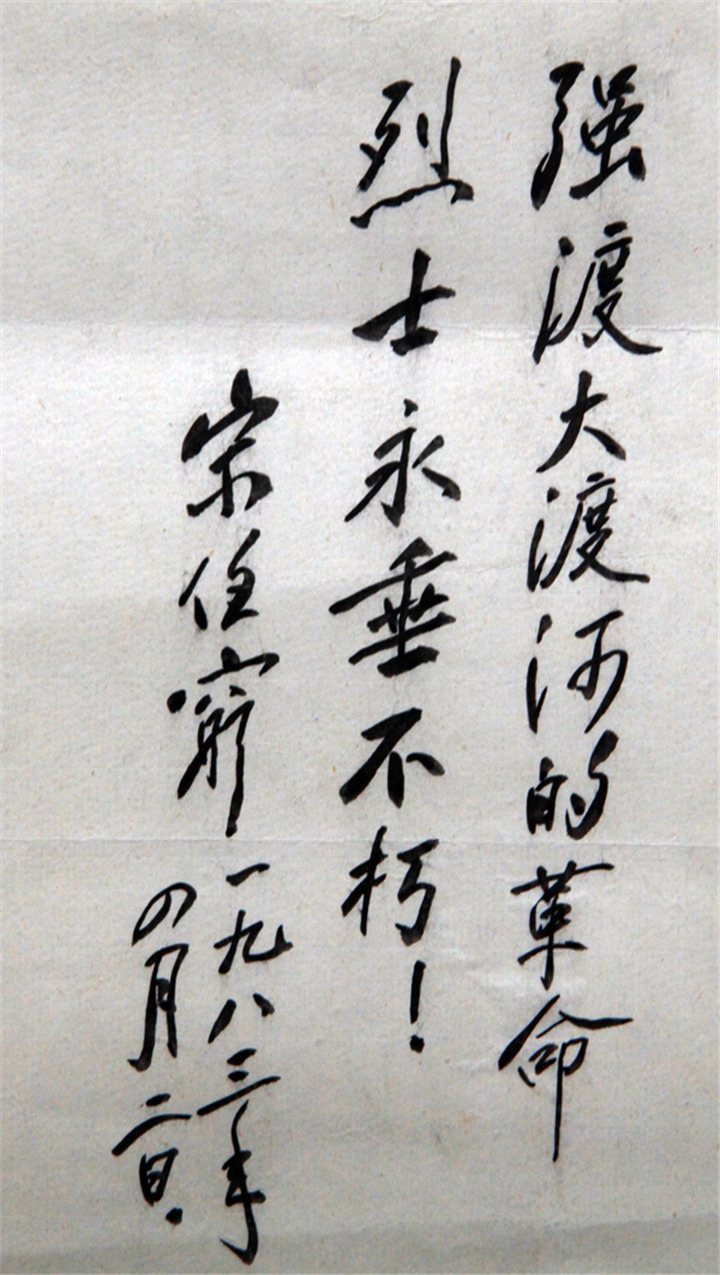 强渡大渡河的革命
烈士永垂不朽!
宋任穷
一九八三年
四月二日.